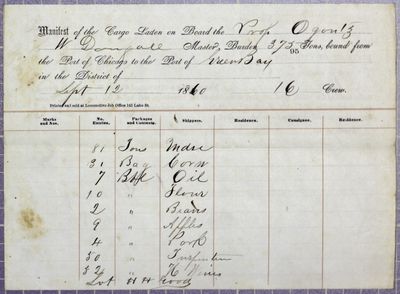 Manifest of the Cargo Laden on Board the Prop Ogontz
W Dougall Master, Burden, 375 95 Tons, bound from
the Port of Chicago to the Port of Green Bay
in the District of
Sept 12 1860 16 Crew.
Printed and sold at Locomotive Job Office 143 Lake St.
Marks and Nos. No. Entries. Packages and Contents. Shippers. Residence. Consignee. Residence.
81 Tons Mdse
31 Bag Corn
7 Bbl Oil
10 " Flour
2 " Beans
9 " Apples
4 " Pork
50 " Turpentine
52 " H Wines
Lot H H Goods